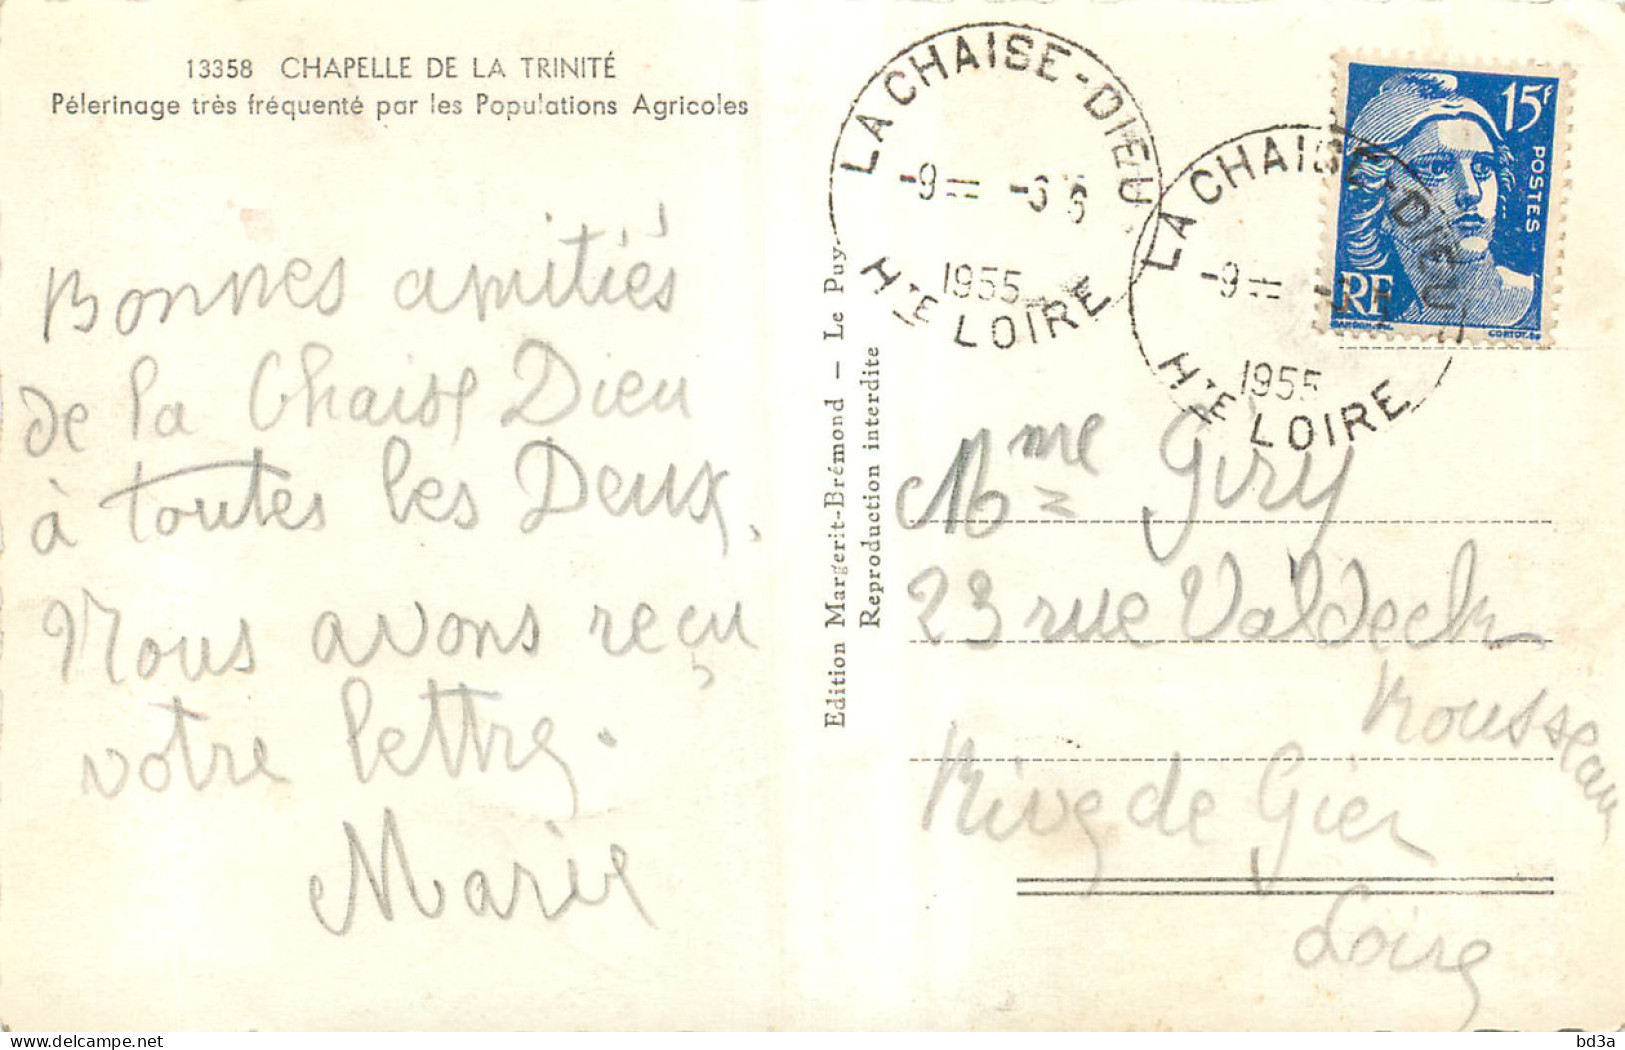 13358 CHAPELLE DE LA TRINITÉ
Pélerinage très fréquenté par les Populations Agricoles
Bonnes amitiés
de la Chaise Dieu
à toutes les Deux.
Nous avons reçu
votre lettre.
Marie
Edition Margerit-Brémond — Le Puy
Reproduction interdite
LA CHAISE-DIEU
-9 = -6
1955
HTE LOIRE
LA CHAISE-DIEU
-9 =
1955
HTE LOIRE
15F
POSTES
RF
Mme Giry
23 rue Valdeck
Rousseau
Rive de Gier
Loire
bd3a